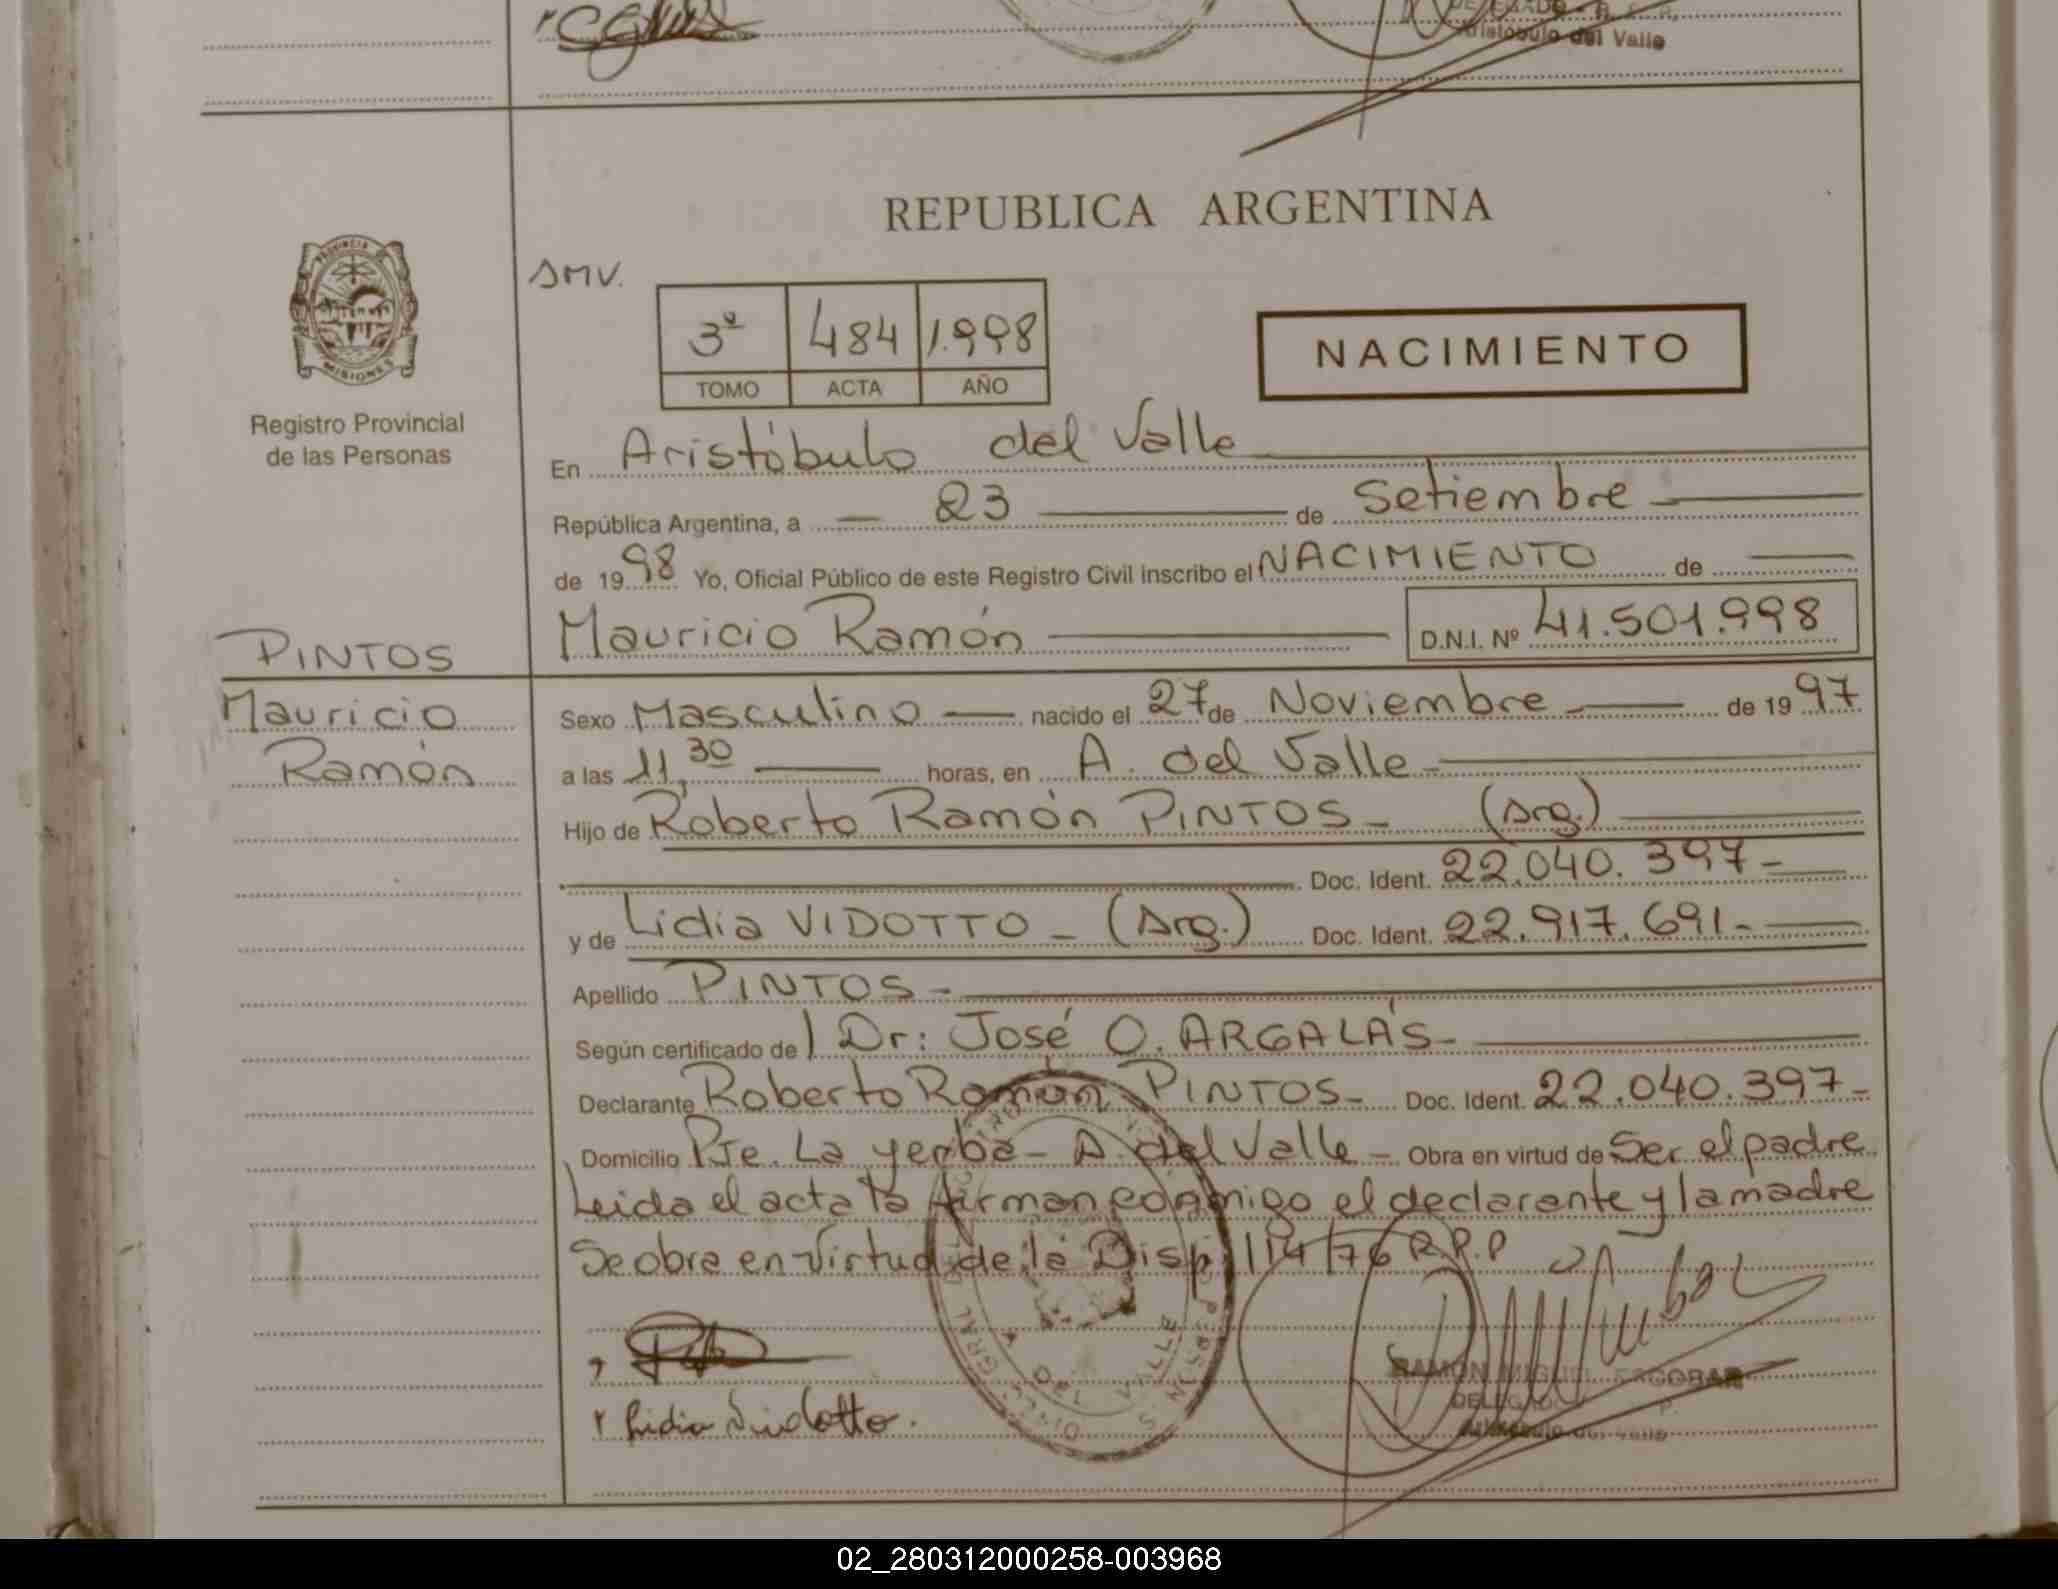 DELEGADO - R. P. P.
Aristóbulo del Valle
REPUBLICA ARGENTINA
PROVINCIA
MISIONES
Registro Provincial
de las Personas
SMV.
3º 484 1.998
TOMO ACTA AÑO
NACIMIENTO
En Aristóbulo del Valle
República Argentina, a 23 de Setiembre
de 1998 Yo, Oficial Público de este Registro Civil inscribo el NACIMIENTO de
Mauricio Ramón D.N.I. Nº 41.501.998
PINTOS
Mauricio
Ramón
Sexo Masculino nacido el 27 de Noviembre de 1997
a las 11,30 horas, en A. del Valle
Hijo de Roberto Ramón PINTOS - (Arg.)
Doc. Ident. 22.040.397-
y de Lidia VIDOTTO - (Arg.) Doc. Ident. 22.917.691-
Apellido PINTOS -
Según certificado del Dr: José O. ARGALÁS-
Declarante Roberto Ramón PINTOS- Doc. Ident. 22.040.397-
Domicilio Pje. La yerba - A. del Valle - Obra en virtud de Ser el padre
Leida el acta la firman conmigo el declarante y la madre
Se obra en virtud de la Disp. 114/76 R.P.P
RAMON MIGUEL ESCOBAR
DELEGADO P.
Aristóbulo del Valle
Lidia Vidotto.
A DEL VALLE
02_280312000258-003968